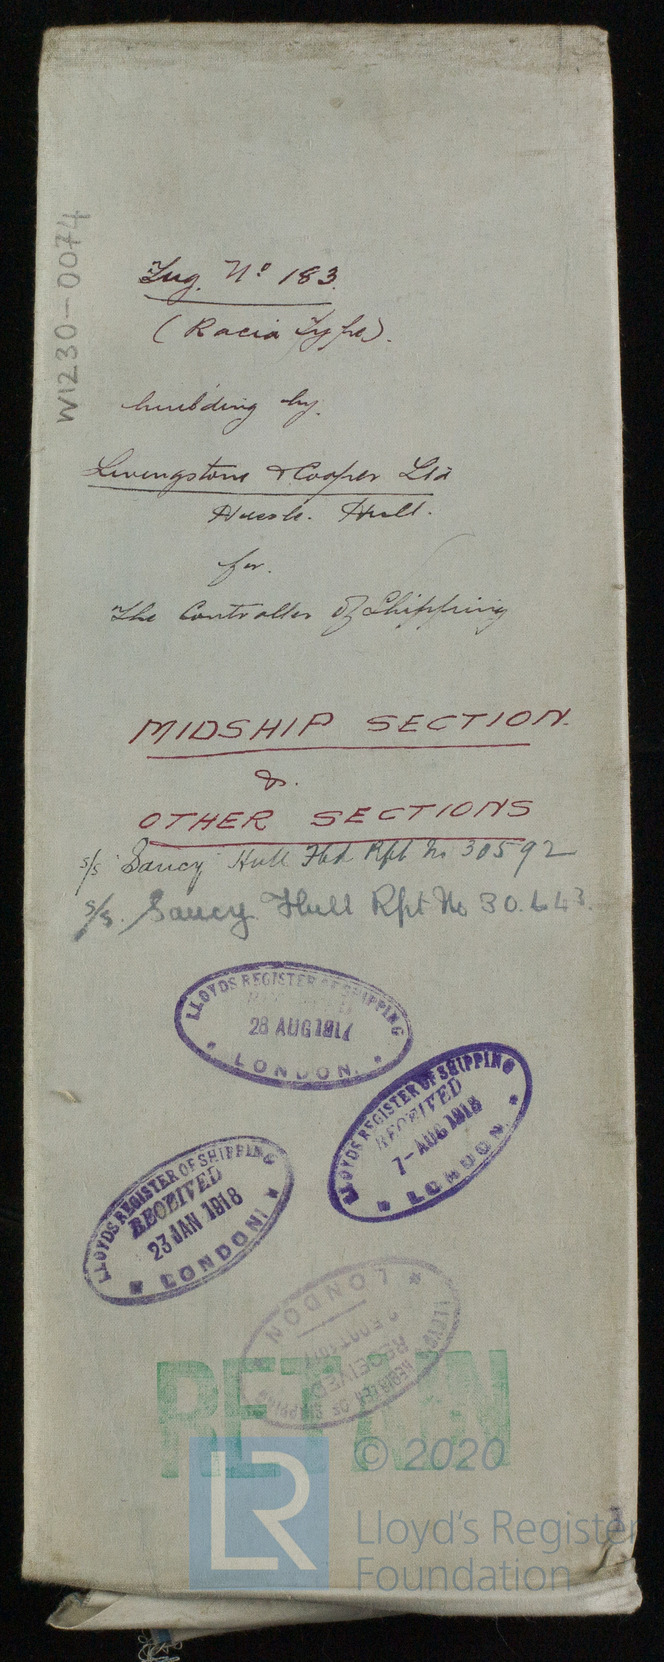 W1230-0074
Tug. Nº 183.
(Racia Type).
building by.
Livingstone & Cooper Ltd
Hessle. Hull.
for.
The Controller Of Shipping
MIDSHIP SECTION.
&.
OTHER SECTIONS
s/s "Saucy" Hull Fbd Rpt No 30592
s/s. Saucy Hull Rpt No 30.643.
LLOYDS REGISTER OF SHIPPING
28 AUG 1917
* LONDON. *
LLOYDS REGISTER OF SHIPPING
RECEIVED
7-AUG 1918
* LONDON *
LLOYDS REGISTER OF SHIPPING
RECEIVED
23 JAN 1918
* LONDON *
LLOYDS REGISTER OF SHIPPING
RECEIVED
OCT
* LONDON *
RETAIN
© 2020
LR
Lloyd's Register
Foundation